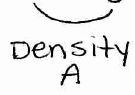 Density
A